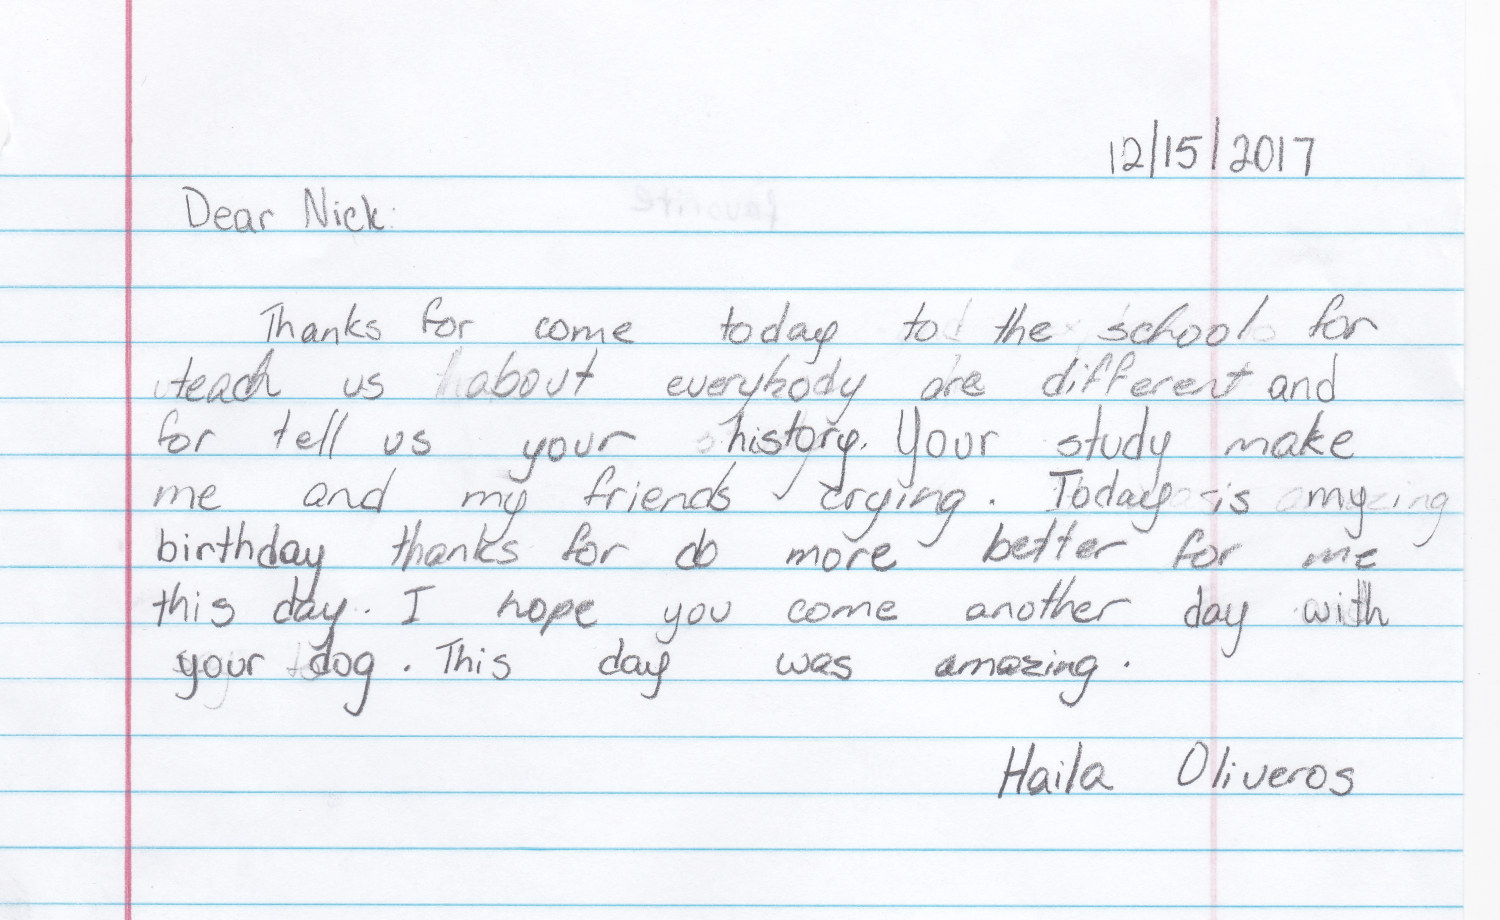 12/15/2017
Dear Nick:
Thanks for come today to the school for
teach us about everybody are different and
for tell us your history. Your study make
me and my friends crying. Today is my
birthday thanks for do more better for me
this day. I hope you come another day with
your dog. This day was amazing.
Haila Oliveros